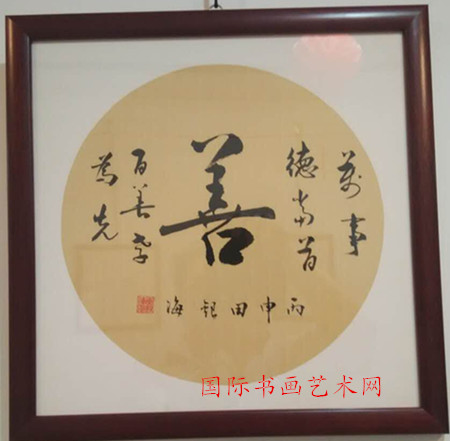 萬事
德當首
善
百善孝
為先
丙申田

海
国际书画艺术网